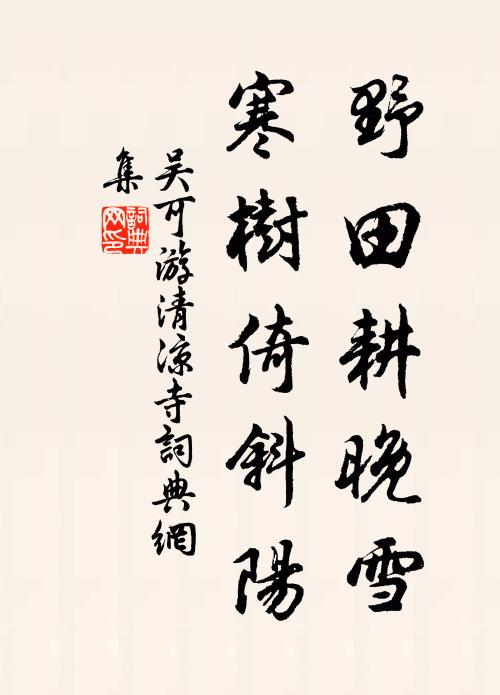 野田耕晚雪
寒樹倚斜陽
吴可游清凉寺詞典網
集
詞典
网印